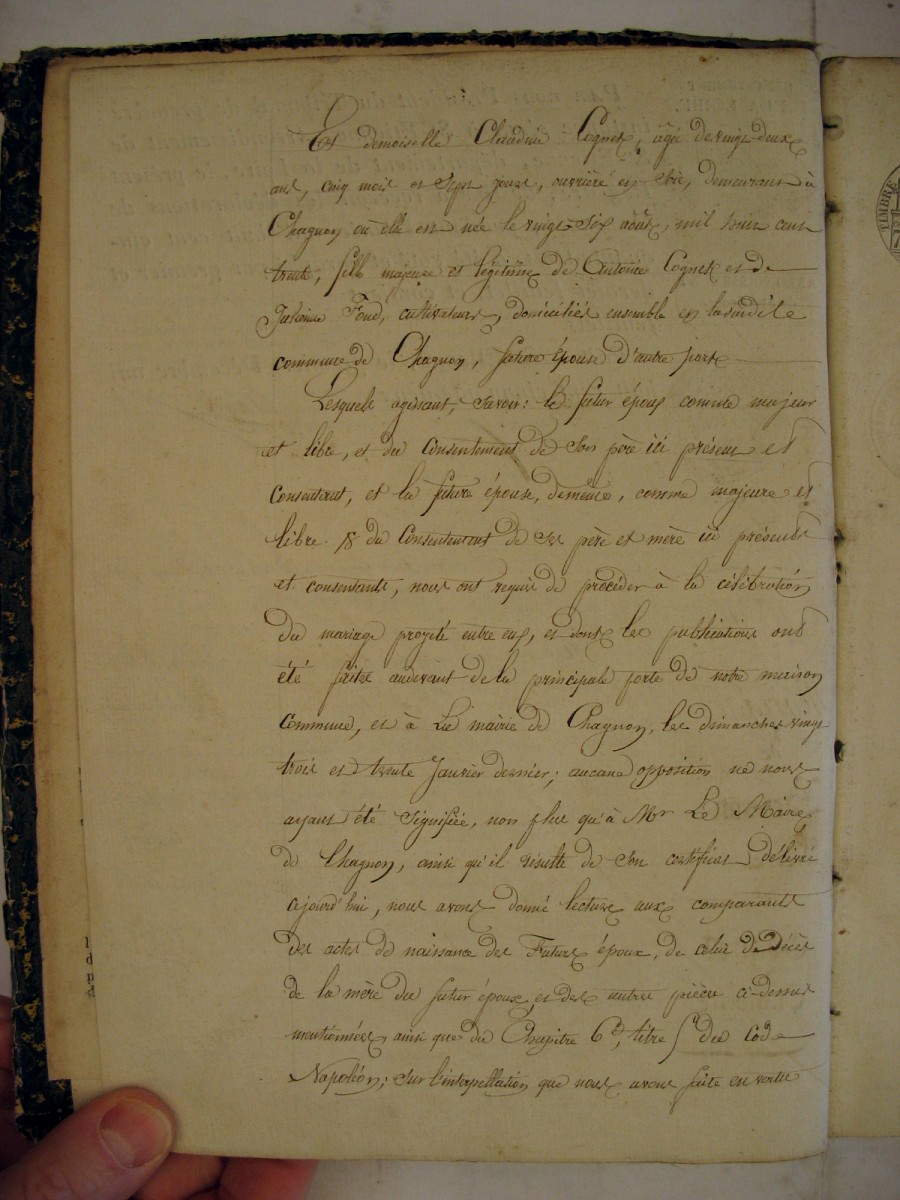 Et demoiselle Claudine Cognet, âgée de vingt-deux
ans, cinq mois et sept jours, ouvrière en soie, demeurant à
Chagnon où elle est née le vingt-six août, mil huit cent
trente, fille majeure et légitime de Antoine Cognet et de
Fond, cultivateurs, domiciliés ensemble en la susdite
commune de Chagnon, future épouse d'autre part
Lesquels agissant, savoir: le futur époux comme majeur
et libre, et du consentement de son père ici présent et
consentant, et la future épouse, de même, comme majeure et
libre & du consentement de ses père et mère ici présents
et consentants, nous ont requis de procéder à la célébration
du mariage projeté entre eux, et dont les publications ont
été faites audevant de la principale porte de notre maison
commune, et à la mairie de Chagnon, les dimanches vingt
trois et trente Janvier dernier; aucune opposition ne nous
ayant été signifiée, non plus qu'à Mr Le Maire
de Chagnon, ainsi qu'il résulte de son certificat délivré
cejourd'hui, nous avons donné lecture aux comparants
des actes de naissance des Futurs époux, de celui de Décès
de la mère du futur époux, et des autres pièces ci-dessus
mentionnées ainsi que du Chapitre 6e, titre 5e du Code
Napoléon; sur l'interpellation que nous avons faite en vertu
TIMBRE